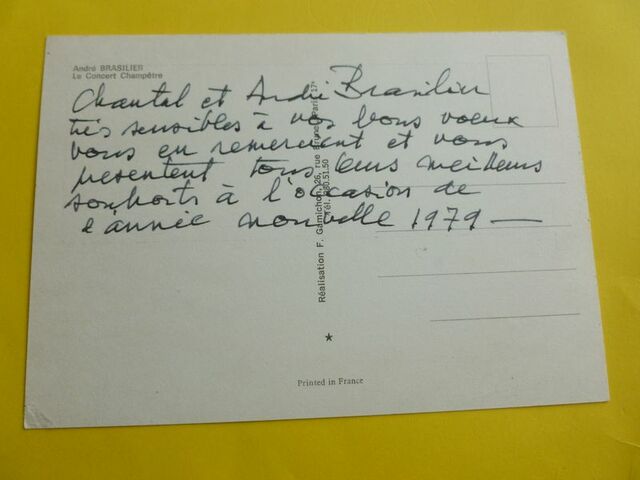 André BRASILIER
Le Concert Champêtre
Chantal et André Brasilier
très sensibles à vos bons voeux
vous en remercient et vous
présentent tous leurs meilleurs
souhaits à l'occasion de
l'année nouvelle 1979 —
Réalisation F. Gamichon, 26, rue Brunel, Paris 17e
Tél. 380.51.50
Printed in France